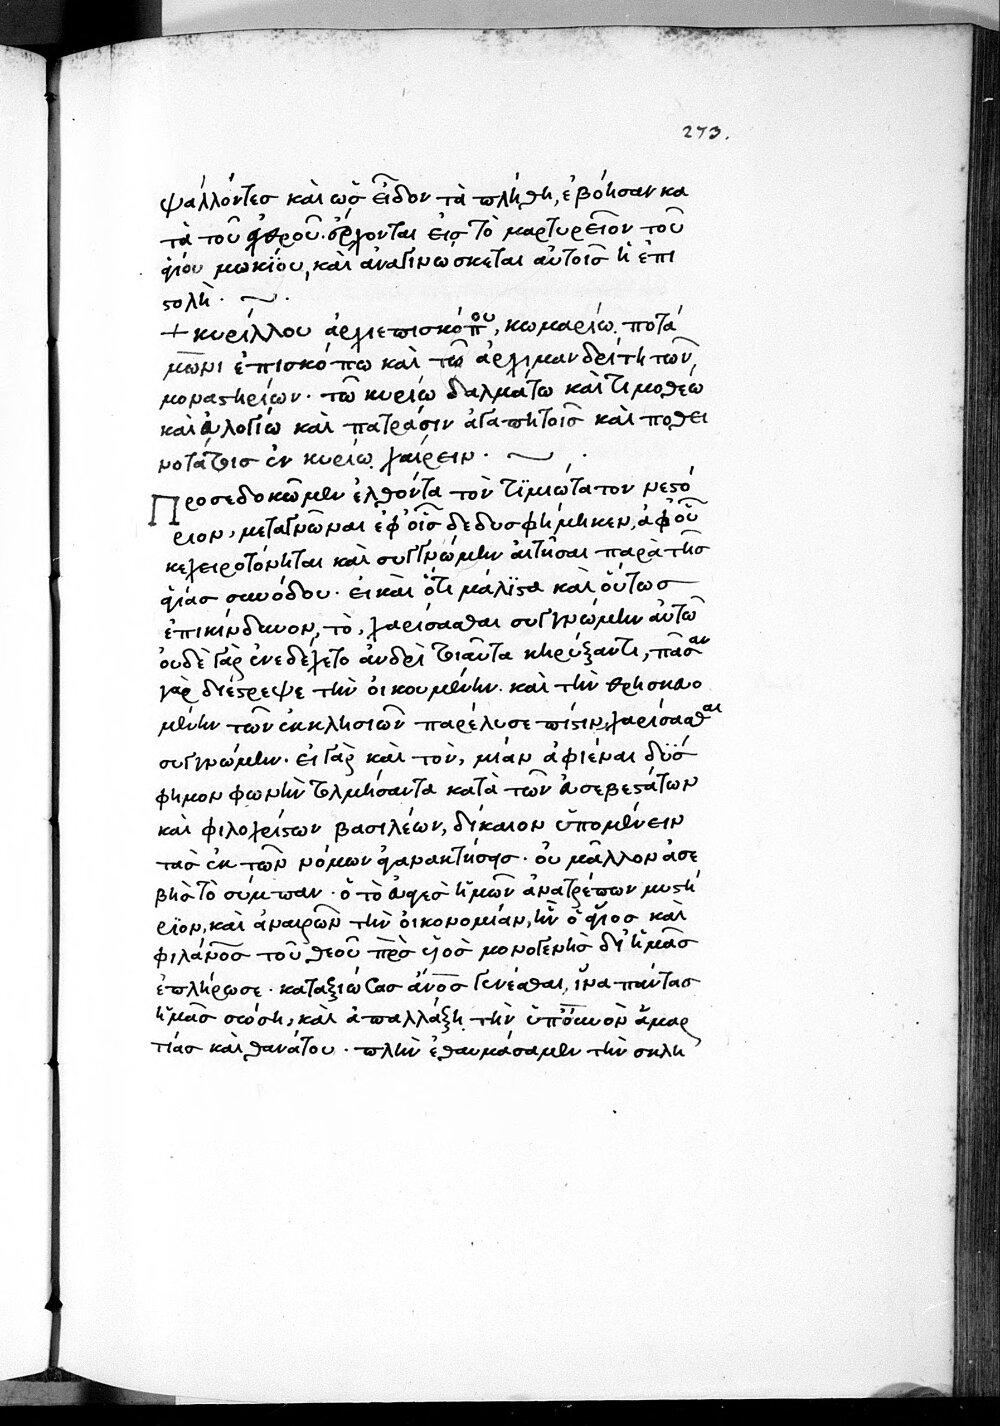 273.
ψάλλόντεσ καὶ ὡσ εἶδον τὰ πλήθη, ἐβόησαν κα
τὰ τοῦ ἐχθροῦ. ἔρχονται εἰσ τὸ μαρτυρεῖον τοῦ
ἁγίου μωκίου, καὶ ἀναγινωσκεται αὐτοῖσ ἡ ἐπι
ϛολὴ.
+ κυρίλλου ἀρχιεπισκόπου, κωμαρίω. ποτά
μωνι ἐπισκόπω καὶ τῶ ἀρχιμανδρίτη τῶν
μοναϛηρίων. τῶ κυρίω δαλμάτω καὶ τιμοθέω
καὶ εὐλογίω καὶ πατράσιν ἀγαπητοῖσ καὶ ποθει
νοτάτοισ ἐν κυρίω χαίρειν.
Προσεδοκῶμεν ἐλθόντα τὸν τϊμιώτατον νεϛό
ριον, μεταγνῶναι ἐφ' οἷσ δεδυσφήμηκεν, ἀφ' οὗ
κεχειροτόνηται καὶ συγγνώμην αἰτῆσαι παρὰ τῆσ
ἁγίασ συνόδου. εἰ καὶ ὅτι μάλϊϛα καὶ οὕτωσ
ἐπικίνδυνον, τὸ, χαρίσασθαι συγνώμην αὐτῶ
οὐδὲ γὰρ ἐνεδέχετο ἀνδρὶ τοιαῦτα κηρύξαντι, πᾶσαν
γὰρ διέϛρεψε τὴν οἰκουμένην. καὶ τὴν θρησκευο
μένην τῶν ἐκκλησιῶν παρέλυσε πίϛιν, χαρίσασθαι
συγνώμην. εἰ γὰρ καὶ τὸν, μίαν ἀφιέναι δύσ
φημον φωνὴν τολμήσαντα κατὰ τῶν εὐσεβεϛάτων
καὶ φιλοχρίϛων βασιλέων, δίκαιον ὑπομένειν
τὰσ ἐκ τῶν νόμων ἀγανακτήσεισ. οὐ μᾶλλον ἀσε
βὴσ τὸ σύμπαν. ὁ τὸ εὐαγὲσ ἡμῶν ἀνατρέπων μυϛή
ριον, καὶ ἀναιρῶν τὴν οἰκονομίαν, ἣν ὁ ἅγιοσ καὶ
φιλάνοσ τοῦ θεοῦ πρσ υἱὸσ μονογενὴσ δι' ἡμᾶσ
ἐπλήρωσε. καταξιώσασ ἄνοσ γενέσθαι, ἵνα πάντασ
ἡμᾶσ σώση, καὶ ἀπαλλάξη τὴν ὑπ' οὐνον ἁμαρ
τίασ καὶ θανάτου. πλὴν ἐθαυμάσαμεν τὴν σκλη